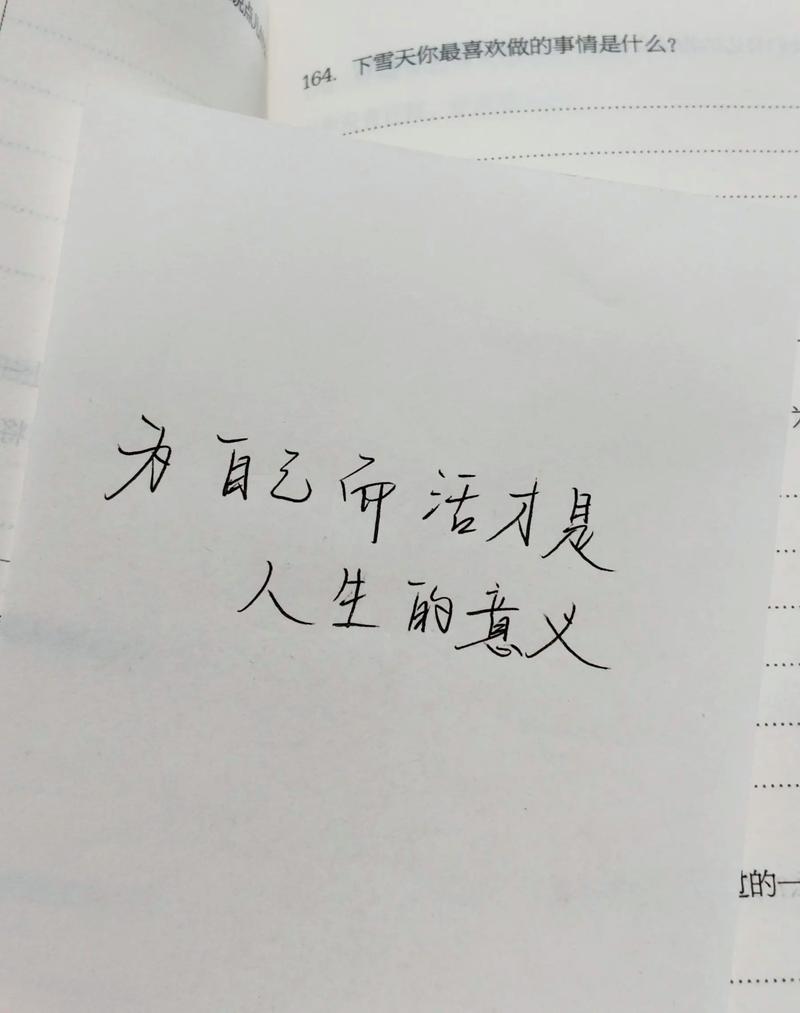 164. 下雪天你最喜欢做的事情是什么?
为自己而活才是
人生的意义
的一